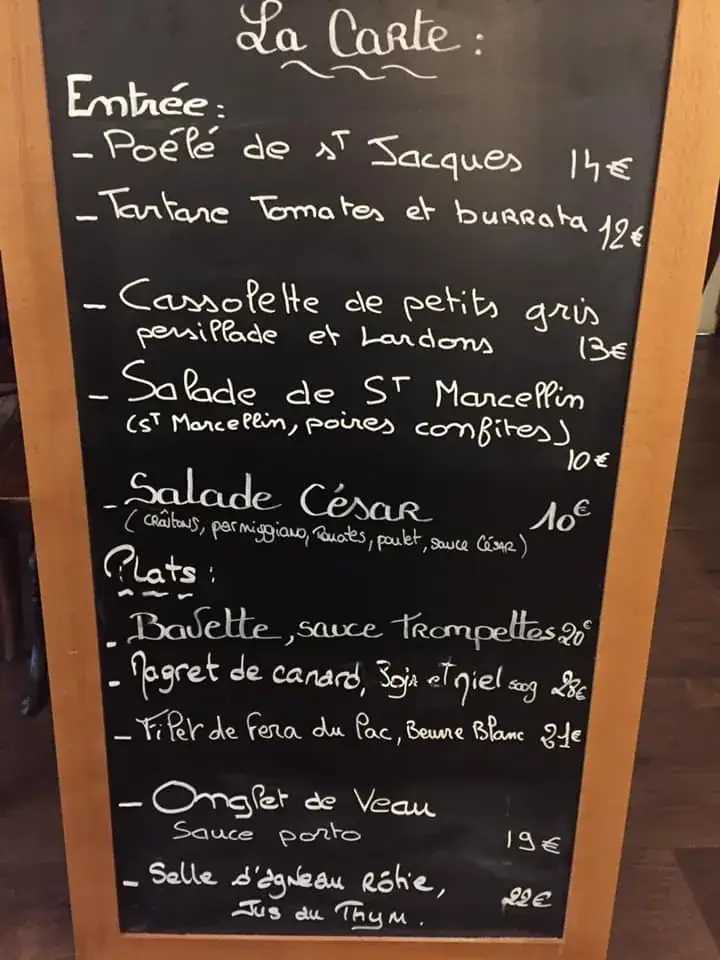 La Carte :
Entrée :
- Poélé de sT Jacques 14€
- Tartare Tomates et burrata 12€
- Cassolette de petits gris
persillade et Lardons 13€
- Salade de ST Marcellin
(sT Marcellin, poires confites)
10€
- Salade César 10€
(croûtons, parmiggiano, Tomates, poulet, sauce César)
Plats :
- Bavette, sauce Trompettes 20€
- Magret de canard, Soja et Miel 500g 28€
- Filet de fera du Lac, Beurre Blanc 21€
- Onglet de Veau
Sauce porto 19€
- Selle d'agneau Rôtie, 22€
Jus du Thym.